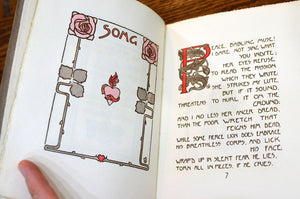 SONG
PEACE, BABLING MUSE!
I DARE NOT SING WHAT
YOU INDITE;
HER EYES REFUSE
TO READ THE PASSION
WHICH THEY WRITE.
SHE STRIKES MY LUTE,
BUT IF IT SOUND,
THREATENS TO HURL IT ON THE
GROUND;
AND I NO LESS HER ANGER DREAD,
THAN THE POOR WRETCH THAT
FEIGNS HIM DEAD,
WHILE SOME FIERCE LION DOES EMBRACE
HIS BREATHLESS CORPS, AND LICK
HIS FACE;
WRAPP'D UP IN SILENT FEAR HE LIES,
TORN ALL IN PIECES, IF HE CRIES.
7